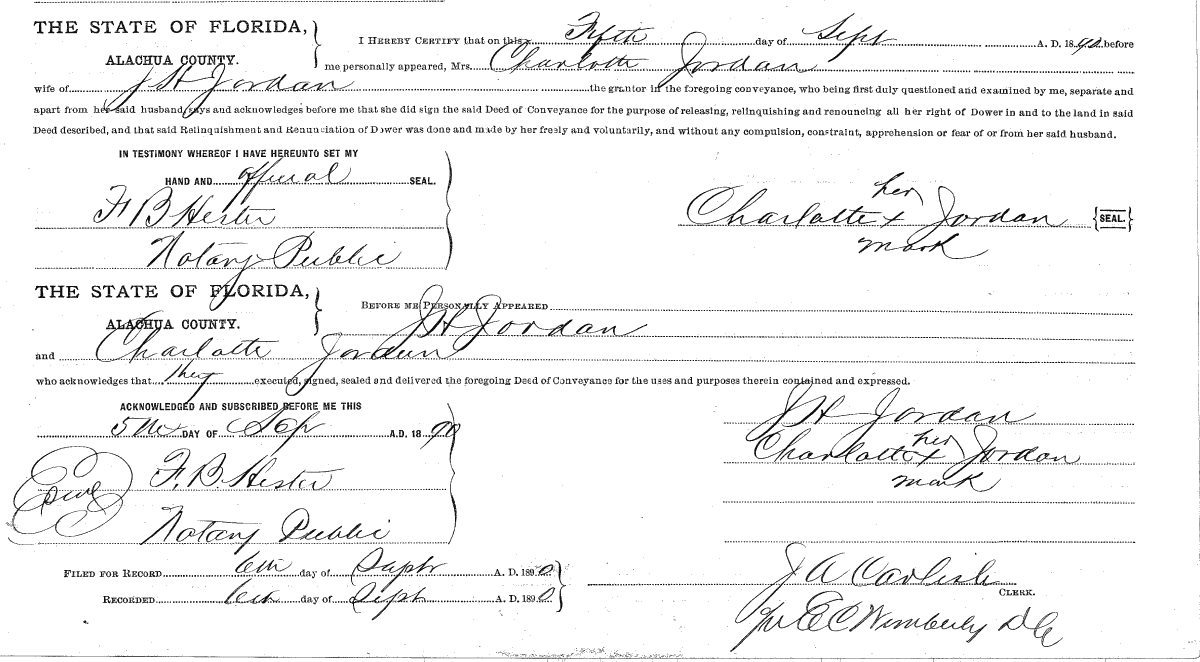 THE STATE OF FLORIDA,
ALACHUA COUNTY.
I HEREBY CERTIFY that on this Fifth day of Sept A. D. 1890 before
me personally appeared, Mrs. Charlotte Jordan
wife of J H Jordan the grantor in the foregoing conveyance, who being first duly questioned and examined by me, separate and
apart from her said husband, says and acknowledges before me that she did sign the said Deed of Conveyance for the purpose of releasing, relinquishing and renouncing all her right of Dower in and to the land in said
Deed described, and that said Relinquishment and Renunciation of Dower was done and made by her freely and voluntarily, and without any compulsion, constraint, apprehension or fear of or from her said husband.
IN TESTIMONY WHEREOF I HAVE HEREUNTO SET MY
HAND AND official SEAL.
F B Hester
Notary Public
her
Charlotte x Jordan {SEAL.}
mark
THE STATE OF FLORIDA,
ALACHUA COUNTY.
BEFORE ME PERSONALLY APPEARED
J H Jordan
and Charlotte Jordan
who acknowledges that they executed, signed, sealed and delivered the foregoing Deed of Conveyance for the uses and purposes therein contained and expressed.
ACKNOWLEDGED AND SUBSCRIBED BEFORE ME THIS
5th DAY OF Sep A.D. 1890
F. B. Hester
Notary Public
J H Jordan
her
Charlotte x Jordan
mark
FILED FOR RECORD 6th day of Sept A. D. 1890
RECORDED 6th day of Sept A. D. 1890
J A Carlisle
CLERK.
per E C Wimberly D C